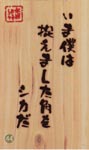 いま僕は
換えました角を
シカだ